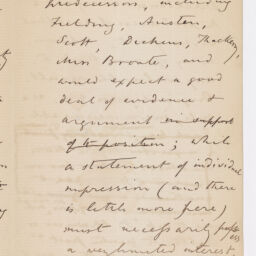 predecessors, including
Fielding, Austen,
Scott, Dickens, Thackeray,
Miss Bronte, and
would expect a good
deal of evidence &
argument in support
of its position; while
a statement of individual
impression (and there
is little more here)
must necessarily possess
a very limited interest,